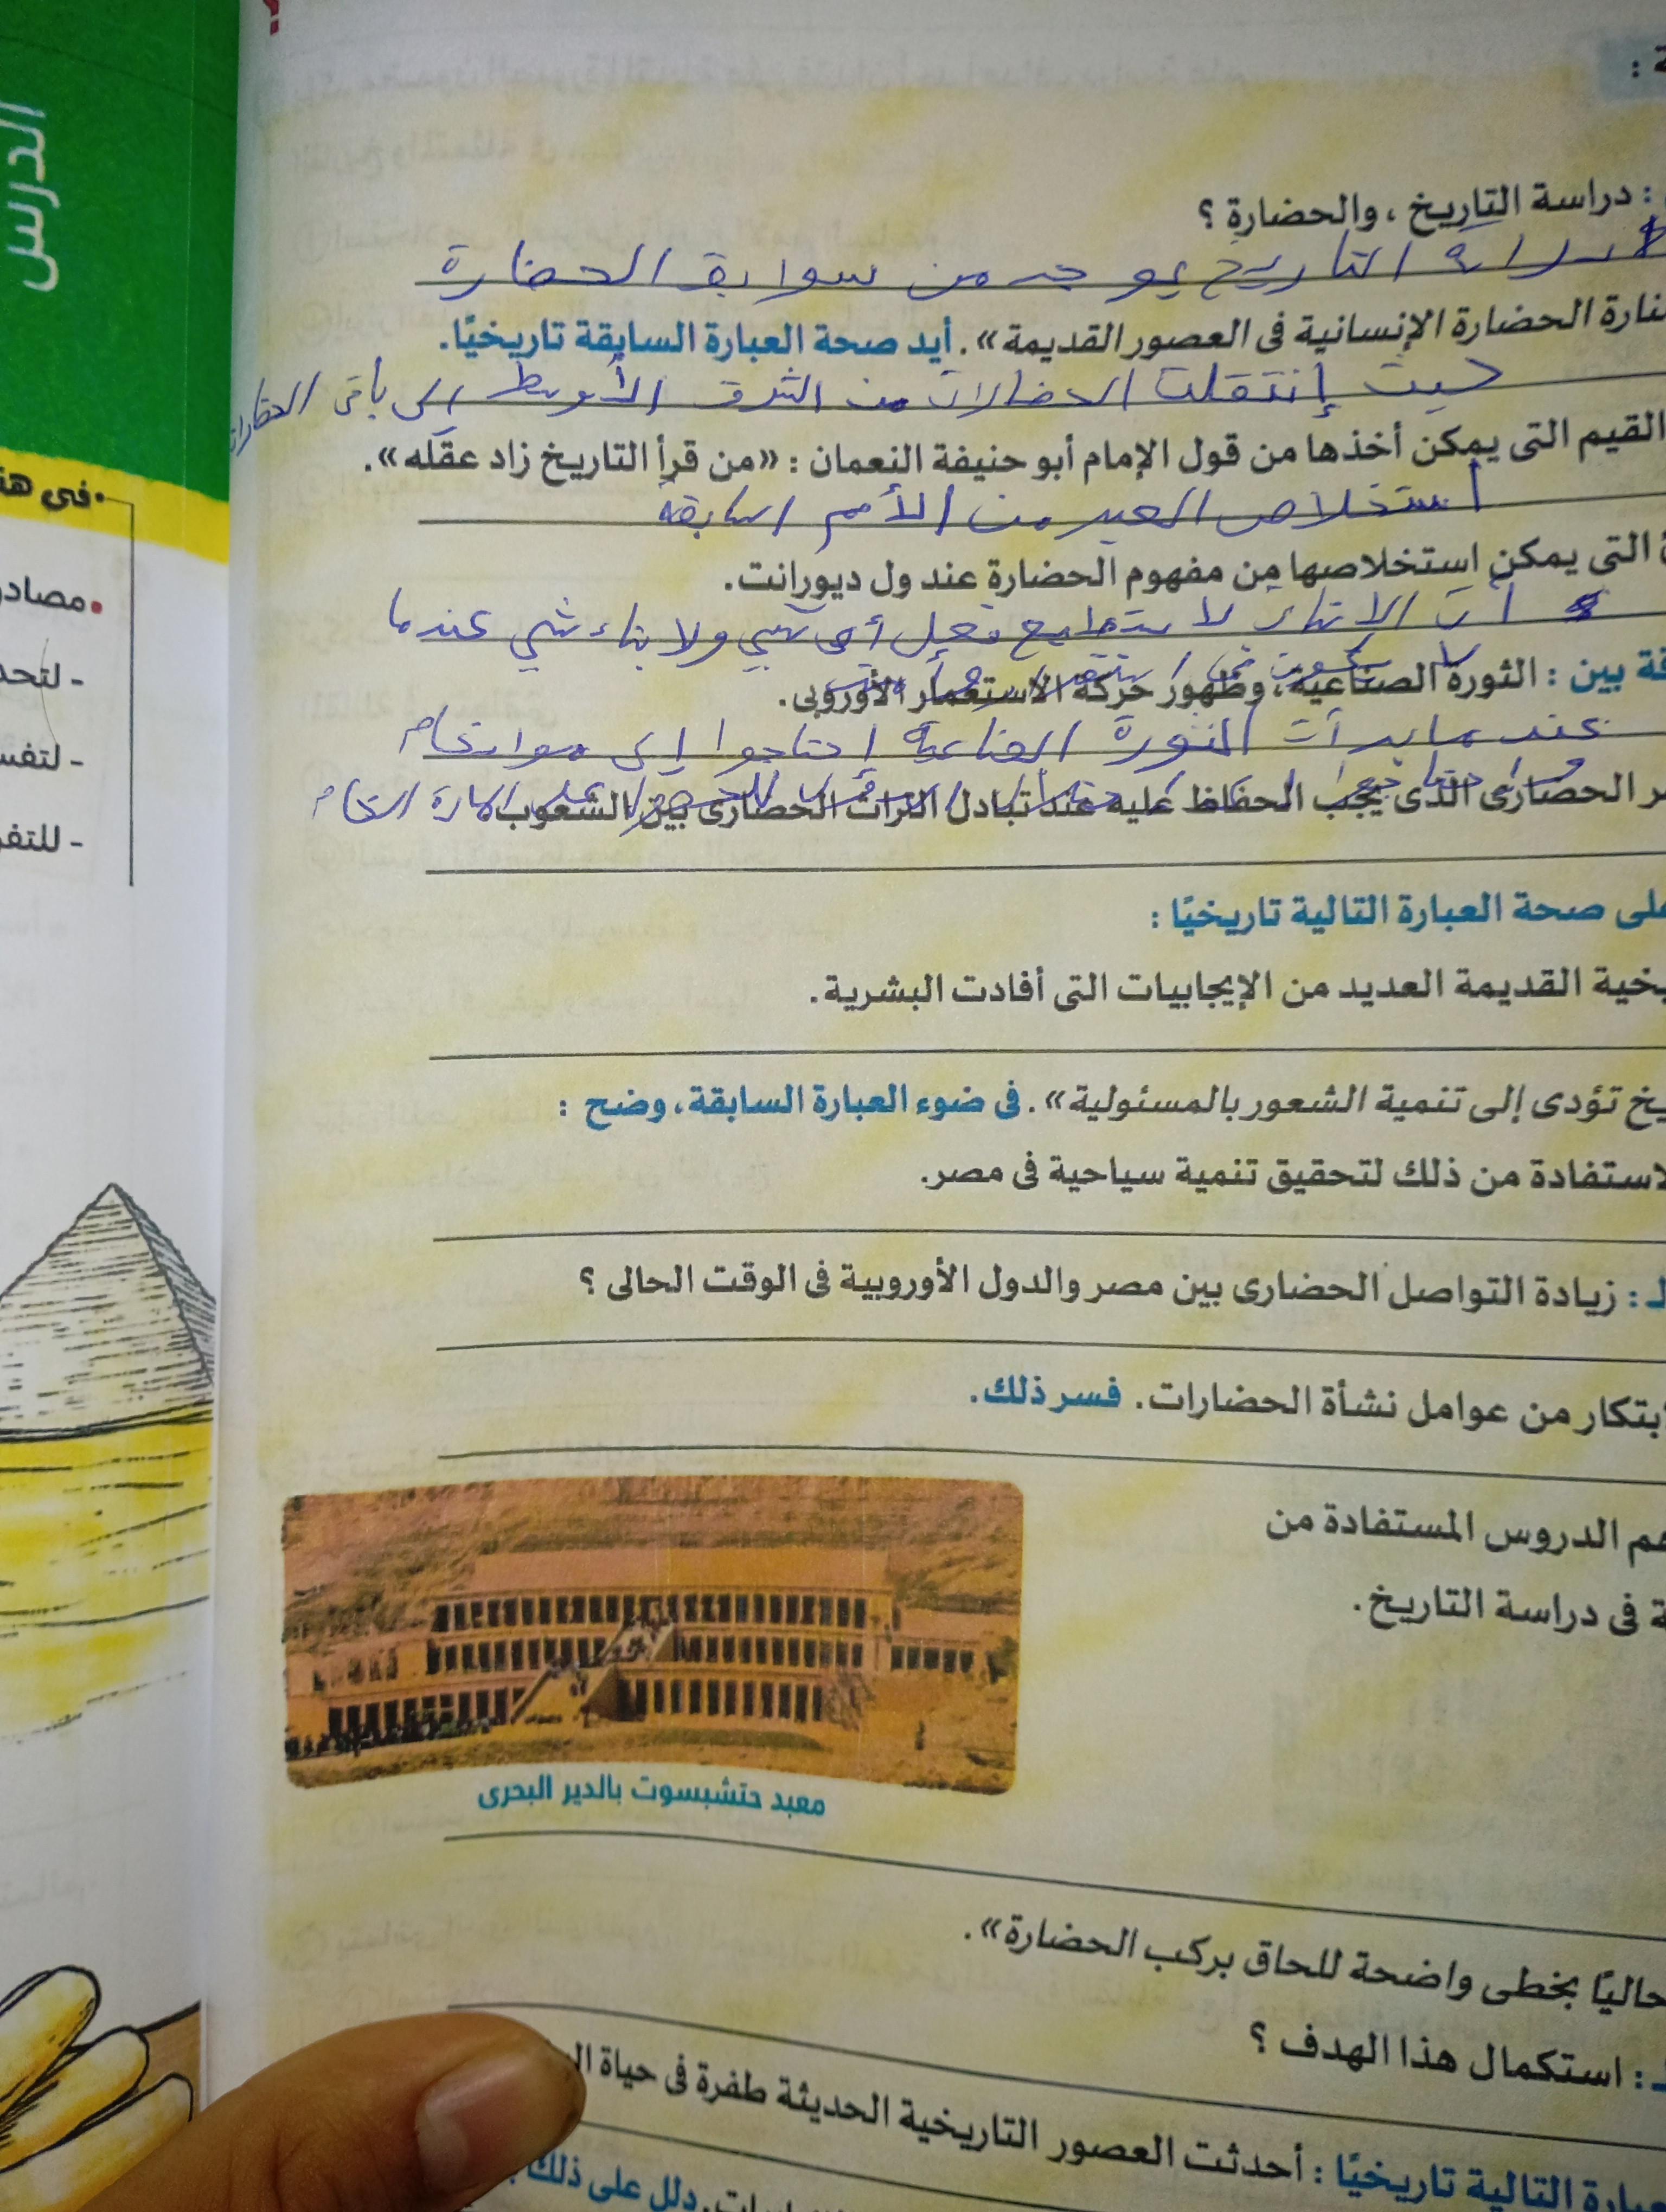 الدرس
• فى هذ
• مصادر
- لتحد
- لتفس
- للتفر
ة :
: دراسة التاريخ ، والحضارة ؟
دراسة التاريخ يوجد من سوابق الحضارة
نارة الحضارة الإنسانية فى العصور القديمة» . أيد صحة العبارة السابقة تاريخيًا.
حيث إنتقلت الحضارات من الشرق الأوسط إلى باقى الحضارات
القيم التى يمكن أخذها من قول الإمام أبو حنيفة النعمان : «من قرأ التاريخ زاد عقله».
أستخلاص العبر من الأمم السابقة
التى يمكن استخلاصها من مفهوم الحضارة عند ول ديورانت.
أن الإنسان لا يستطيع فعل أى شيئ ولا بناء شي عندما
لا يكون فى إستقرار
قة بين : الثورة الصناعية، وظهور حركة الاستعمار الأوروبى.
عند ما بدأت الثورة الصناعية إحتاجوا إلى مواد خام
ر الحضارى الذى يجب الحفاظ عليه عند تبادل التراث الحضارى بين الشعوب.
المادة الخام
على صحة العبارة التالية تاريخيًا :
يخية القديمة العديد من الإيجابيات التى أفادت البشرية.
يخ تؤدى إلى تنمية الشعور بالمسئولية» . فى ضوء العبارة السابقة، وضح :
لاستفادة من ذلك لتحقيق تنمية سياحية فى مصر.
لـ : زيادة التواصل الحضارى بين مصر والدول الأوروبية فى الوقت الحالى ؟
لابتكار من عوامل نشأة الحضارات. فسر ذلك.
هم الدروس المستفادة من
ة فى دراسة التاريخ.
معبد حتشبسوت بالدير البحرى
حاليًا بخطى واضحة للحاق بركب الحضارة».
لـ : استكمال هذا الهدف ؟
بارة التالية تاريخيًا : أحدثت العصور التاريخية الحديثة طفرة فى حياة
دلل على ذلك